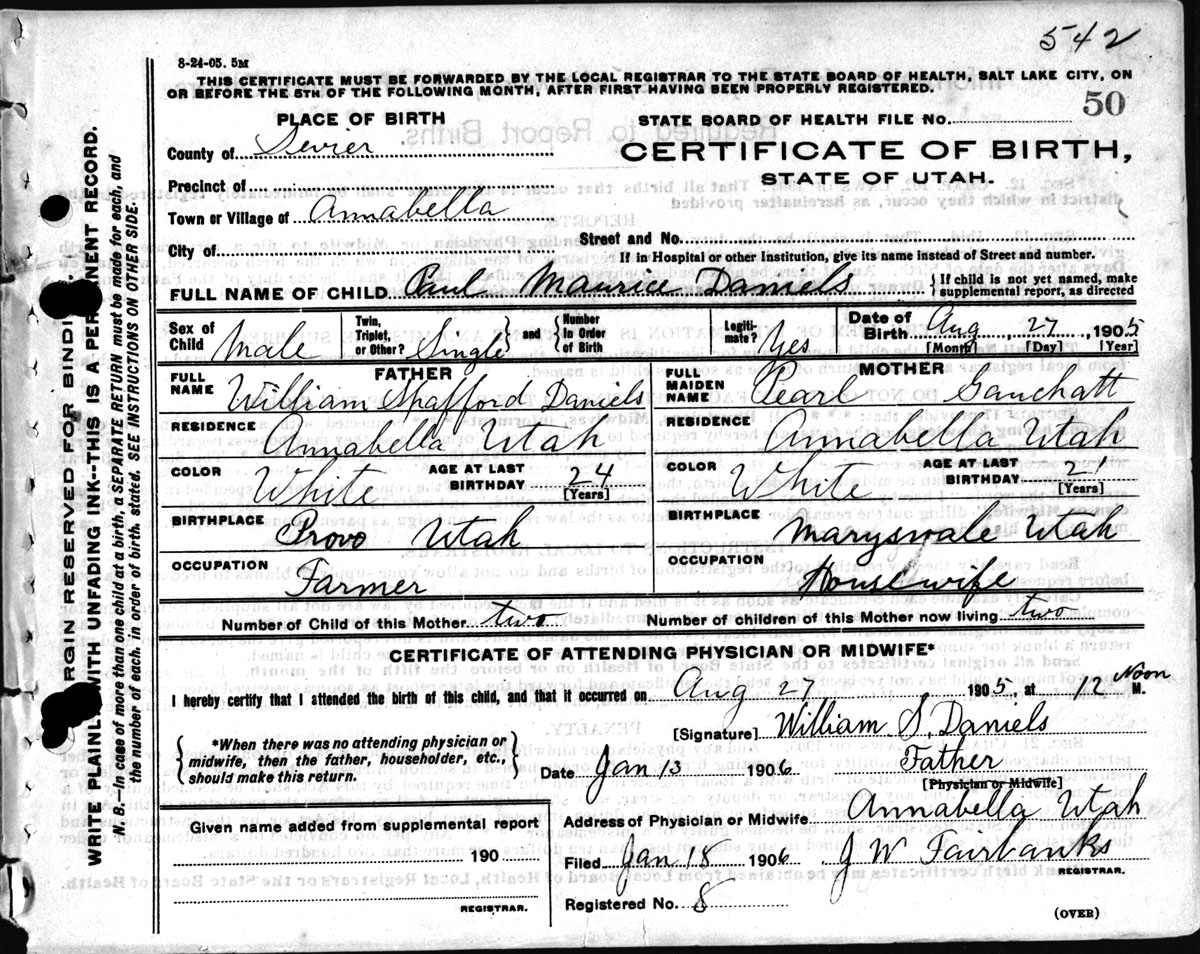 542
8-24-05. 5M
THIS CERTIFICATE MUST BE FORWARDED BY THE LOCAL REGISTRAR TO THE STATE BOARD OF HEALTH, SALT LAKE CITY, ON
OR BEFORE THE 5TH OF THE FOLLOWING MONTH, AFTER FIRST HAVING BEEN PROPERLY REGISTERED.
PLACE OF BIRTH
STATE BOARD OF HEALTH FILE No. 50
County of Sevier
CERTIFICATE OF BIRTH,
STATE OF UTAH.
Precinct of
Town or Village of Annabella
Street and No.
City of
If in Hospital or other Institution, give its name instead of Street and number.
FULL NAME OF CHILD Paul Maurice Daniels { If child is not yet named, make
supplemental report, as directed
Sex of Child Male Twin, Triplet, or Other? Single } and { Number In Order of Birth Legiti-mate? Yes Date of Birth Aug 27, 1905
[Month] [Day] [Year]
FATHER MOTHER
FULL NAME William Shafford Daniels FULL MAIDEN NAME Pearl
RESIDENCE Annabella Utah RESIDENCE Annabella Utah
COLOR White AGE AT LAST BIRTHDAY 24 [Years] COLOR White AGE AT LAST BIRTHDAY 21 [Years]
BIRTHPLACE Provo Utah BIRTHPLACE Marysvale Utah
OCCUPATION Farmer OCCUPATION Housewife
Number of Child of this Mother two Number of children of this Mother now living two
CERTIFICATE OF ATTENDING PHYSICIAN OR MIDWIFE*
I hereby certify that I attended the birth of this child, and that it occurred on Aug 27, 1905, at 12 Noon M.
{ *When there was no attending physician or
midwife, then the father, householder, etc.,
should make this return. }
[Signature] William S. Daniels
Date Jan 13 1906 Father
[Physician or Midwife]
Given name added from supplemental report
190
REGISTRAR.
Address of Physician or Midwife Annabella Utah
Filed Jan 18 1906 J W Fairbanks
REGISTRAR.
Registered No. 8
(OVER)
RGIN RESERVED FOR BINDI
WRITE PLAINLY WITH UNFADING INK--THIS IS A PERMANENT RECORD.
N. B.—In case of more than one child at a birth, a SEPARATE RETURN must be made for each, and
the number of each, in order of birth, stated. SEE INSTRUCTIONS ON OTHER SIDE.